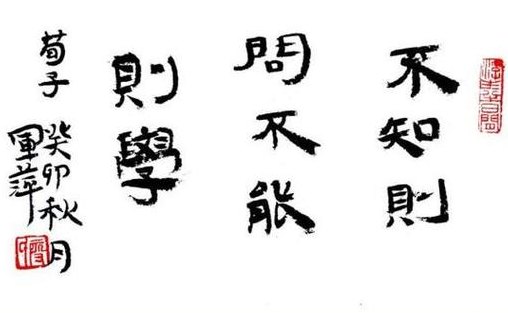 不知則
問不能
則學
荀子 癸卯秋月
軍萍